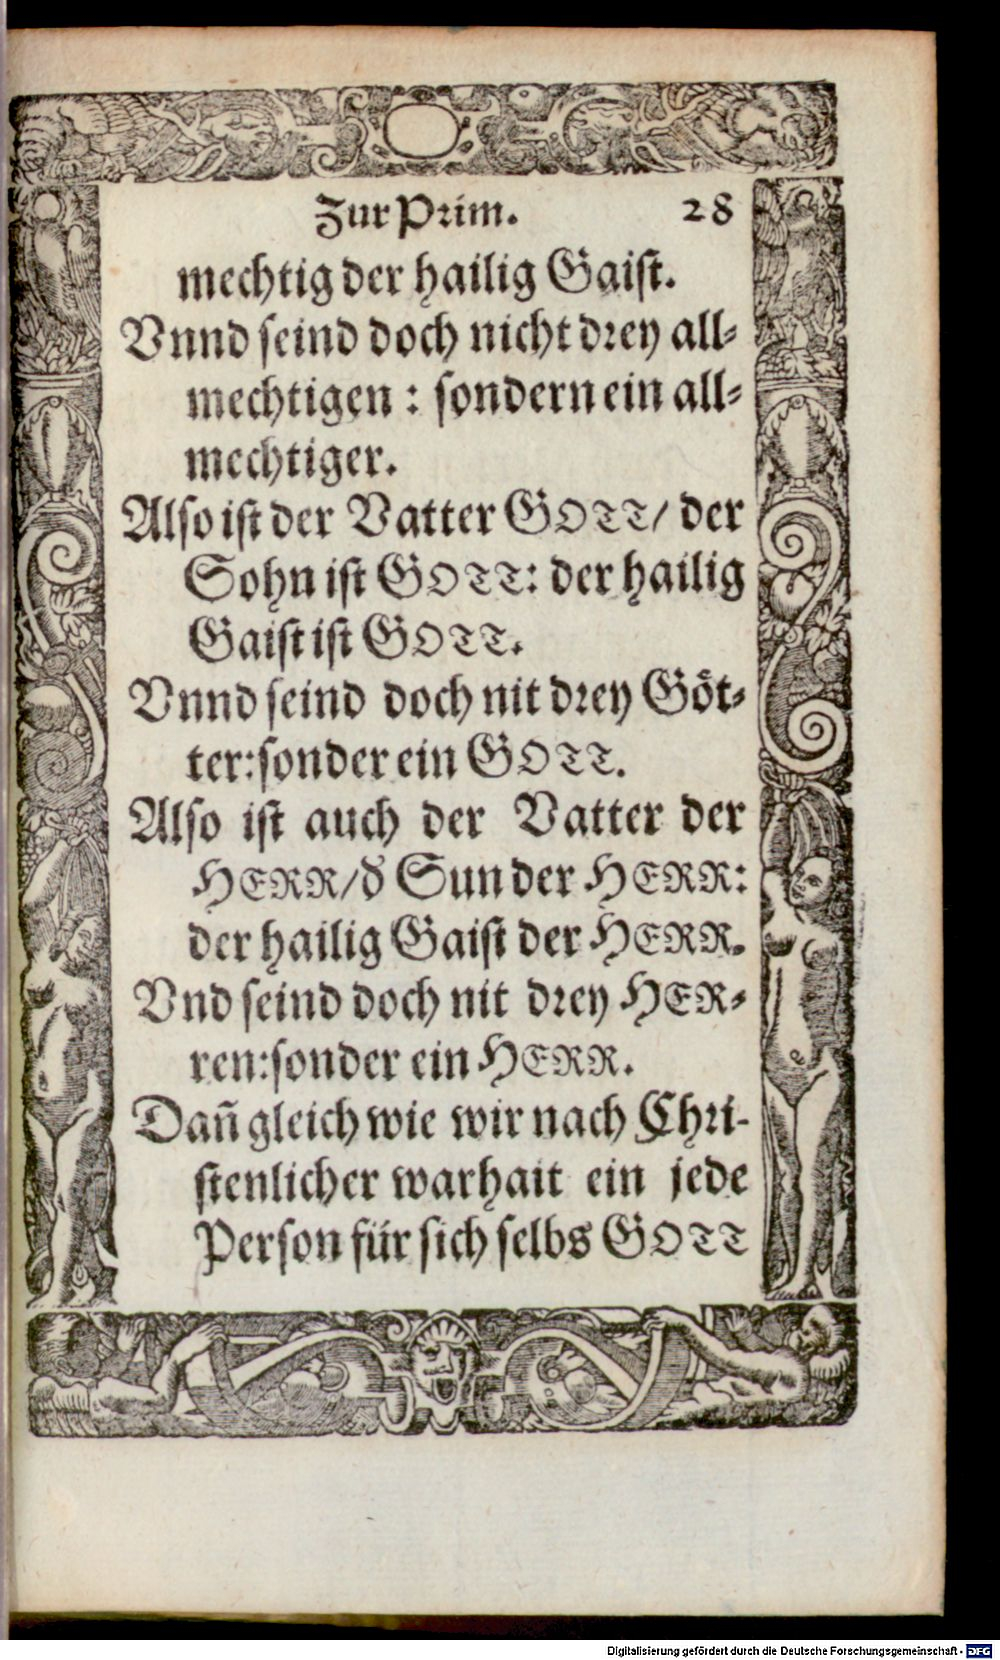 Zur Prim. 28
mechtig der hailig Gaist.
Vnnd seind doch nicht drey all-
mechtigen : sondern ein all-
mechtiger.
Also ist der Vatter GOTT/ der
Sohn ist GOTT: der hailig
Gaist ist GOTT.
Vnnd seind doch nit drey Göt-
ter: sonder ein GOTT.
Also ist auch der Vatter der
HERR/ đ Sun der HERR:
der hailig Gaist der HERR.
Vnd seind doch nit drey HER-
ren: sonder ein HERR.
Dañ gleich wie wir nach Chri-
stenlicher warhait ein jede
Person für sich selbs GOTT
Digitalisierung gefördert durch die Deutsche Forschungsgemeinschaft - DFG